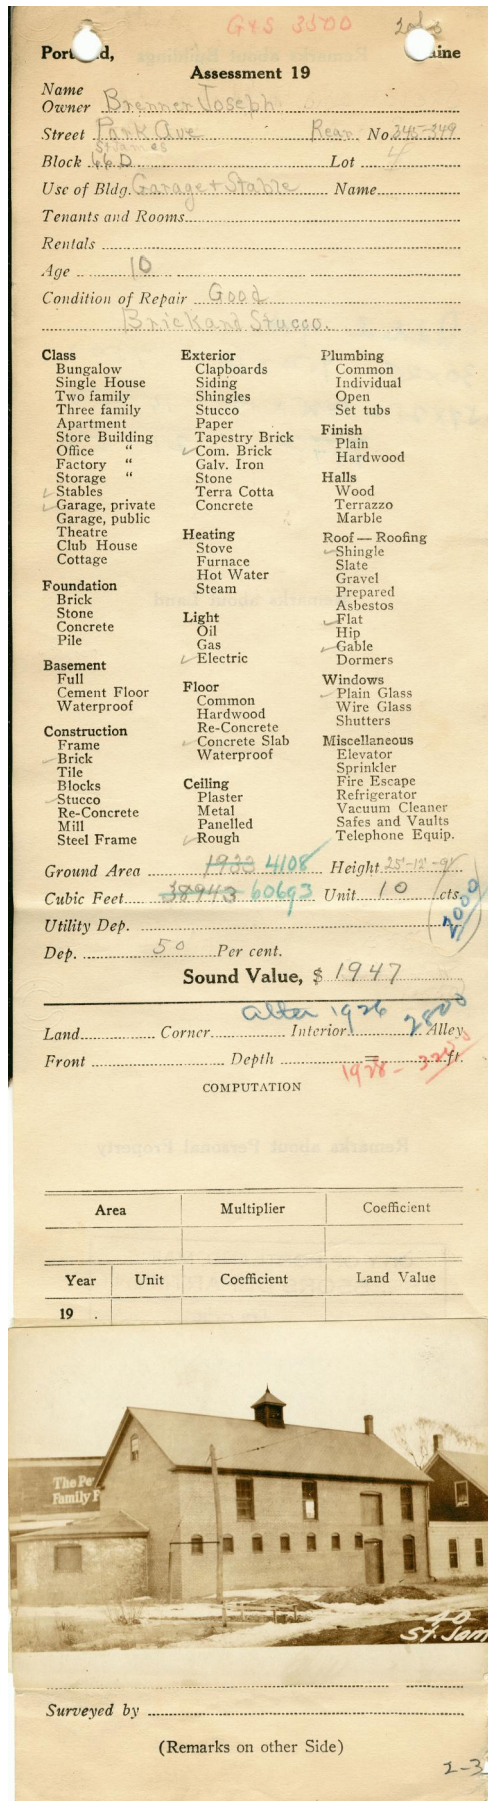 G&S 3500
Assessment 19
Name
Owner Brenner Joseph
Street Park Ave Rear No. 345-349
St James
Block 66D Lot 4
Use of Bldg. Garage + Stable Name
Tenants and Rooms
Rentals
Age 10
Condition of Repair Good
Brick and Stucco.
Class
Bungalow
Single House
Two family
Three family
Apartment
Store Building
Office "
Factory "
Storage "
✓ Stables
✓ Garage, private
Garage, public
Theatre
Club House
Cottage
Foundation
Brick
Stone
Concrete
Pile
Basement
Full
Cement Floor
Waterproof
Construction
Frame
✓ Brick
Tile
Blocks
✓ Stucco
Re-Concrete
Mill
Steel Frame
Exterior
Clapboards
Siding
Shingles
Stucco
Paper
Tapestry Brick
✓ Com. Brick
Galv. Iron
Stone
Terra Cotta
Concrete
Heating
Stove
Furnace
Hot Water
Steam
Light
Oil
Gas
✓ Electric
Floor
Common
Hardwood
Re-Concrete
✓ Concrete Slab
Waterproof
Ceiling
Plaster
Metal
Panelled
✓ Rough
Plumbing
Common
Individual
Open
Set tubs
Finish
Plain
Hardwood
Halls
Wood
Terrazzo
Marble
Roof — Roofing
✓ Shingle
Slate
Gravel
Prepared
Asbestos
✓ Flat
Hip
✓ Gable
Dormers
Windows
✓ Plain Glass
Wire Glass
Shutters
Miscellaneous
Elevator
Sprinkler
Fire Escape
Refrigerator
Vacuum Cleaner
Safes and Vaults
Telephone Equip.
Ground Area 1933 4108 Height 25'-12'-9'
Cubic Feet 38943 60693 Unit 10 cts.
2000
Utility Dep.
Dep. 50 Per cent.
Sound Value, $ 1947
after 1926 2800
Land Corner Interior Alley
Front Depth = ft.
1928-
COMPUTATION
Area Multiplier Coefficient
Year Unit Coefficient Land Value
19
The Pe
Family F
40
St. Jam
Surveyed by
(Remarks on other Side)
2-3